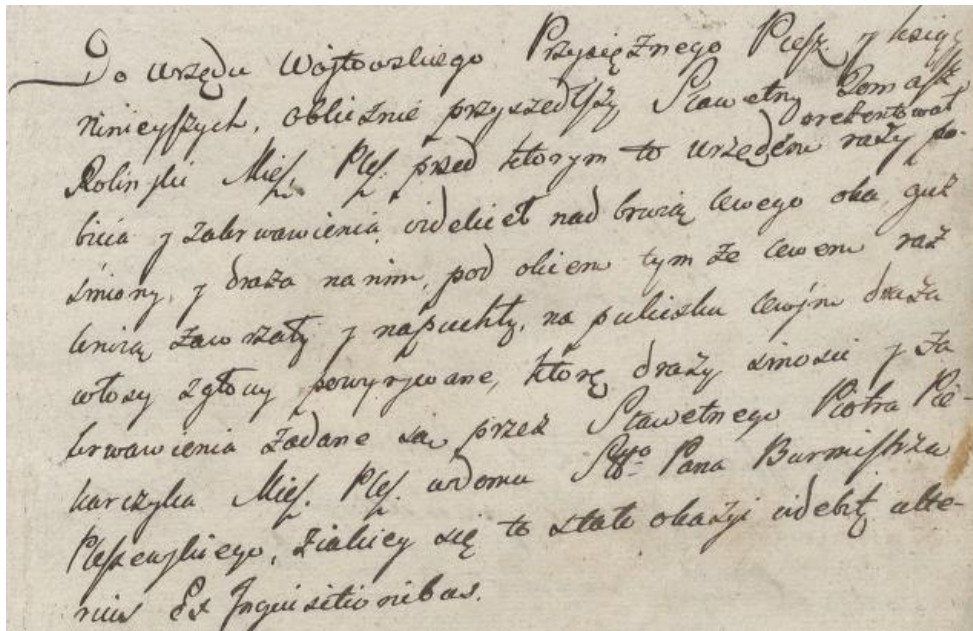 Do Urzędu Woytowskiego Przysięznego Plesz. y ksiąg
ninieyszych, oblicznie przyszedłszy Sławetny Tomasz
orekentował
Roliński Miesz. Plesz. przed ktorym to urzędem razy po-
bicia y zakrwawienia videlicet nad brwią lewego oka, guz
siniony, y draza na nim, pod okiem tym ze lewem raz
krwią zawrzały y napuchły, na policzku lewym draza
włosy z głowy powyrywane, ktorę drazy sinosci y za
krwawienia zadane są przez Sławetnego Piotra Pie-
karczyka Miesz. Plesz. w domu Sławgo Pana Burmistrza
Pleszewskiego, z iakiey się to stało okazyi videbit alte-
rius Ex Inquisitionibus.